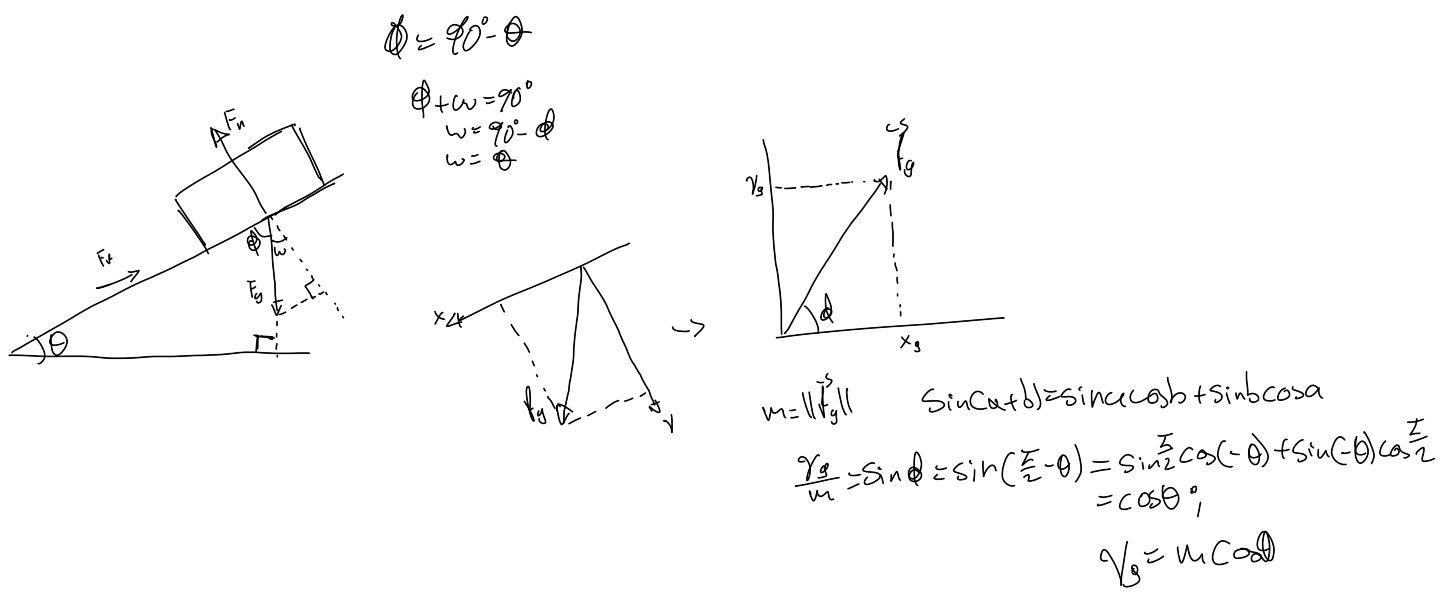 ϕ = 90° - θ
ϕ + ω = 90°
ω = 90° - ϕ
ω = θ
Fn
ϕ ω
Fg
θ
x
Fg
y
->
yg
Fg
ϕ
xg
m = ||Fg||
sin(a+b) = sinacosb + sinbcosa
yg/m = sinϕ = sin(π/2 - θ) = sin π/2 cos(-θ) + sin(-θ) cos π/2
= cosθ ;
yg = m cosθ